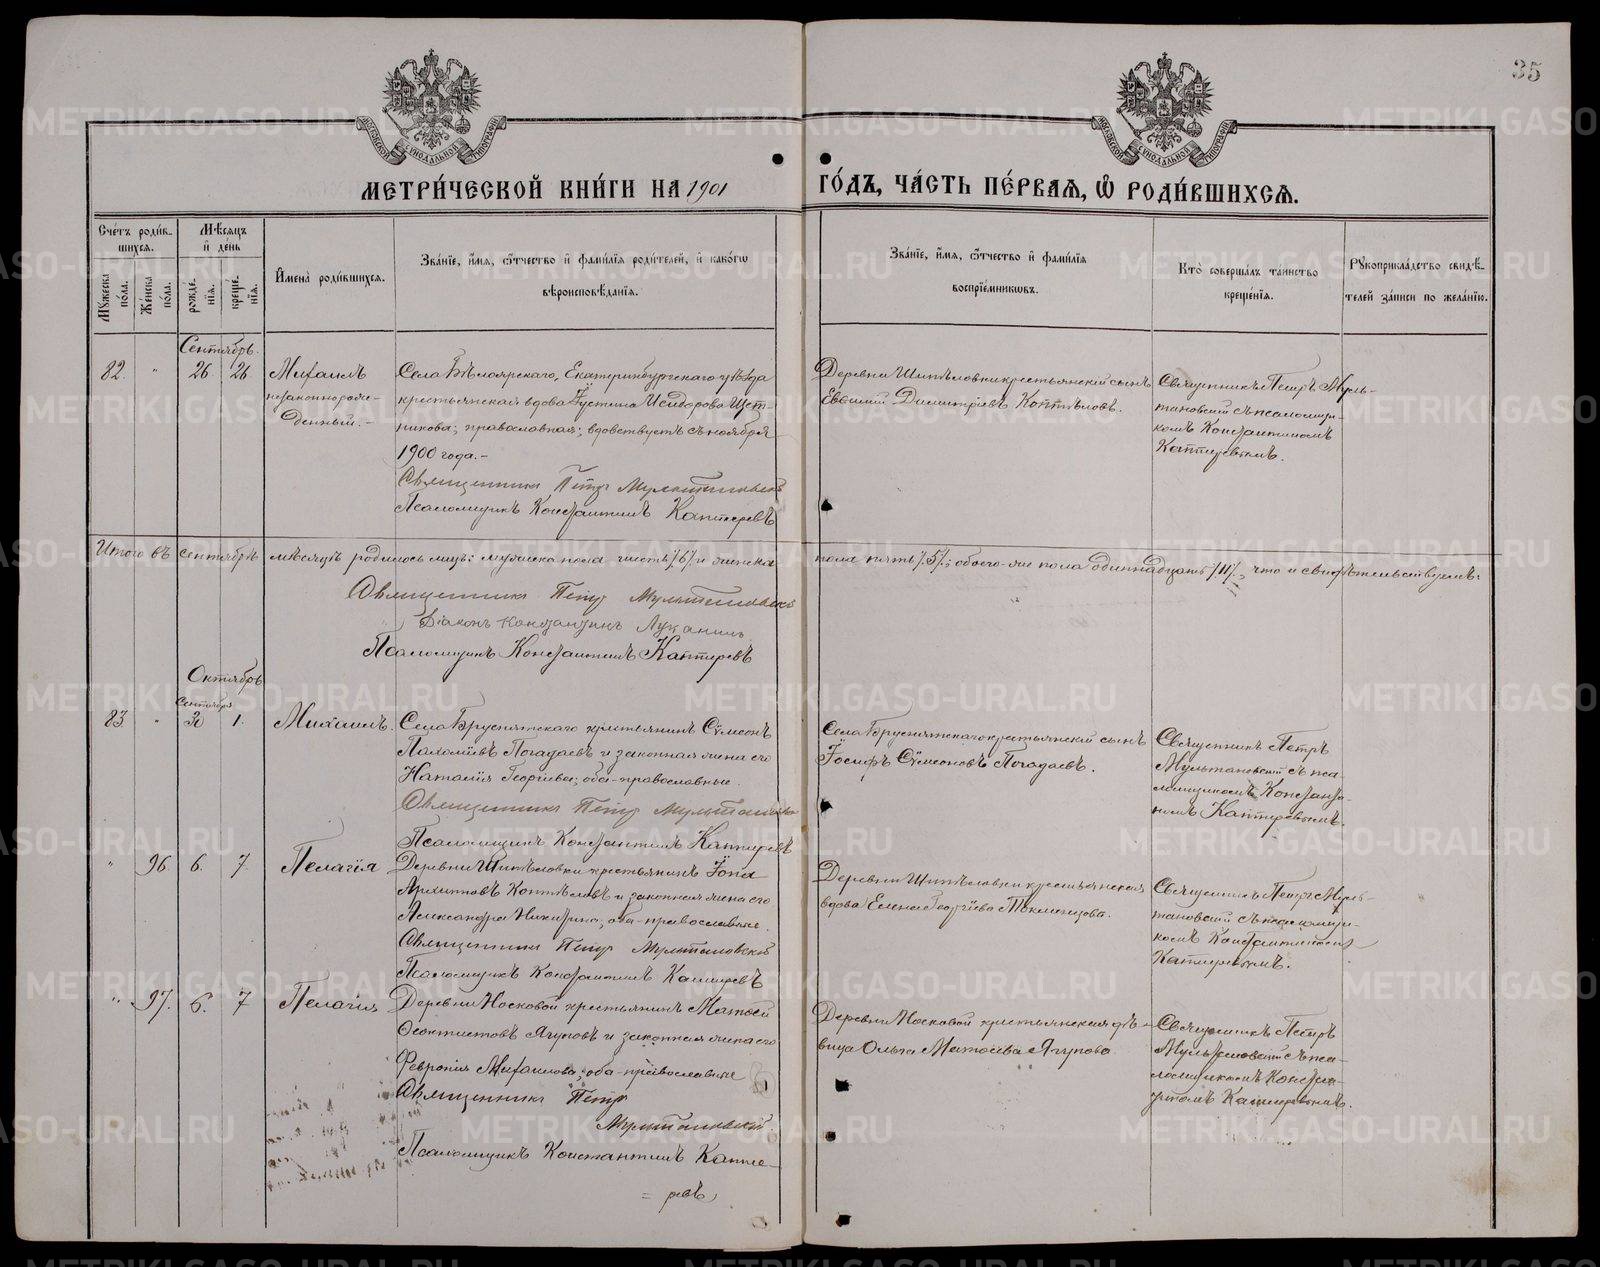 35
МЕТРИ́ЧЕСКОЙ КНИ́ГИ НА 1901
ГО́ДЪ, ЧА́СТЬ ПЕ́РВАѦ, Ѽ РОДИ́ВШИХСѦ.
Сче́тъ роди́в-
шихсѧ.
Мꙋ́жеска по́ла.
Же́нска по́ла.
Мѣ́сѧцъ и де́нь
рожде́-нїѧ.
креще́-нїѧ.
И҆мена̀ роди́вшихсѧ.
Зва́нїе, и҆́мѧ, ѻ҆́тчество и҆ фами́лїѧ роди́телей, и҆ како́гѡ
вѣроисповѣ́данїѧ.
Зва́нїе, и҆́мѧ, ѻ҆́тчество и҆ фами́лїѧ
воспрїе́мникѡвъ.
Кто̀ соверша́лъ та́инство
креще́нїѧ.
Рꙋкоприкла́дство свидѣ́-
телей за́писи по жела́нїю.
Сентябрь.
82. " 26 26 Михаилъ
незаконнорож-
денный.-
Села Бѣлоярскаго, Екатеринбургскаго уѣзда
крестьянская вдова Іустина Исидорова
православная; вдовствуетъ съ ноября
1900 года.-
Священникъ Петръ Мультановскій
Псаломщикъ Константинъ Каптеревъ
Деревни крестьянскій сынъ
Евѳимій Димитріевъ Коптѣловъ.
Священникъ Петръ Муль-
тановскій съ псаломщи-
комъ Константиномъ
Каптеревымъ.
Итого въ сентябрѣ мѣсяцѣ родилось лицъ: мужска пола шесть /6/ и женска
пола пять /5/; обоего-же пола одиннадцать /11/, что и свидѣтельствуемъ:
Священникъ Петръ Мультановскій
Діаконъ Константинъ Луканинъ
Псаломщикъ Константинъ Каптеревъ
Октябрь
Сентября
83 " 30 1. Михаилъ.
Села Бруснятскаго крестьянинъ Сѵмеонъ
Пахоміевъ Погадаевъ и законная жена его
Наталія Георгіева; оба-православные.
Священникъ Петръ Мультановскій
Псаломщикъ Константинъ Каптеревъ
Села Бруснятскаго крестьянскій сынъ
Іосифъ Сѵмеоновъ Погадаевъ.
Священникъ Петръ
Мультановскій съ пса-
ломщикомъ Констант-
иномъ Каптеревымъ.
" 96. 6. 7. Пелагія
Деревни крестьянинъ Іона
Архиповъ Коптѣловъ и законная жена его
Александра Никитина; оба-православные.
Священникъ Петръ Мультановскій
Псаломщикъ Константинъ Каптеревъ
Деревни крестьянская
вдова Елена Георгіева
Священникъ Петръ Муль-
тановскій съ псаломщи-
комъ Константиномъ
Каптеревымъ.
" 97. 6. 7 Пелагія
Деревни Носковой крестьянинъ Матѳей
Ѳеоктистовъ Ягуповъ и законная жена его
Февронія Михаилова; оба-православные
Священникъ Петръ
Мультановскій.
Псаломщикъ Константинъ Капте-
= ревъ
Деревни Носковой крестьянская дѣ-
вица Ольга Матѳеева Ягупова.
Священникъ Петръ
Мультановскій съ пса-
ломщикомъ Констан-
тиномъ Каптеревымъ.
METRIKI.GASO-URAL.RU